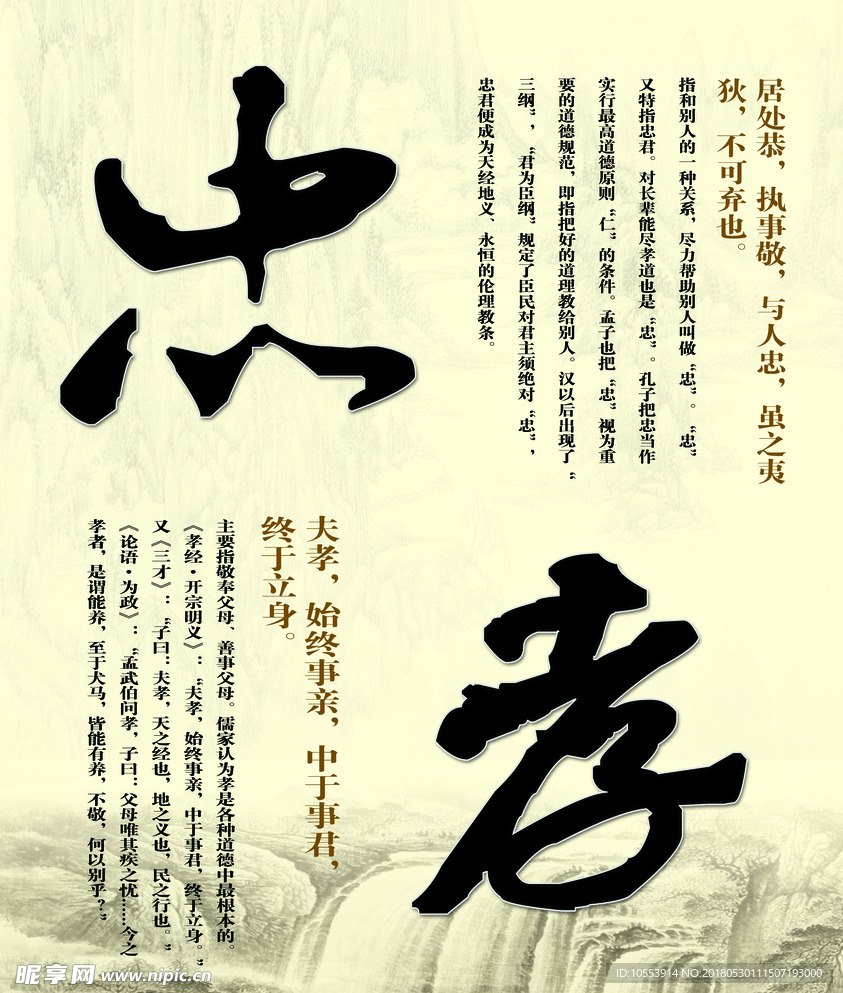 忠
居处恭，执事敬，与人忠，虽之夷
狄，不可弃也。
指和别人的一种关系，尽力帮助别人叫做“忠”。“忠”
又特指忠君。对长辈能尽孝道也是“忠”。孔子把忠当作
实行最高道德原则“仁”的条件。孟子也把“忠”视为重
要的道德规范，即指把好的道理教给别人。汉以后出现了“
三纲”，“君为臣纲”规定了臣民对君主须绝对“忠”，
忠君便成为天经地义、永恒的伦理教条。
孝
夫孝，始终事亲，中于事君，
终于立身。
主要指敬奉父母、善事父母。儒家认为孝是各种道德中最根本的。
《孝经·开宗明义》：“夫孝，始终事亲，中于事君，终于立身。”
又《三才》：“子曰：夫孝，天之经也，地之义也，民之行也。”
《论语·为政》：“孟武伯问孝，子曰：父母唯其疾之忧……今之
孝者，是谓能养，至于犬马，皆能有养，不敬，何以别乎？”
昵享网 www.nipic.cn
ID:10553914 NO:20180530111507193000